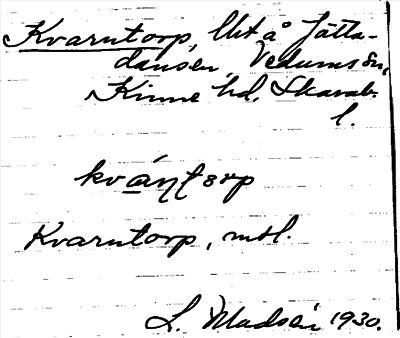 Kvarntorp, lht å Jätta-
dansen, Vedums sn,
Kinne hd. Skarab.
l.
kvántorp
Kvarntorp, mtl.
L. Madsén 1930.